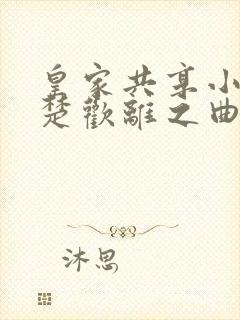 皇家共享小
楚歡離之曲
沐思